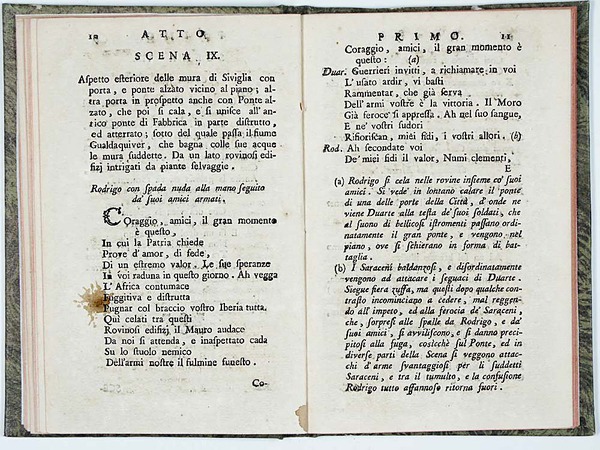 10 ATTO
SCENA IX.
Aspetto esteriore delle mura di Siviglia con
porta, e ponte alzato vicino al piano; al-
tra porta in prospetto anche con Ponte al-
zato, che poi si cala, e si unisce all' an-
tico ponte di Fabbrica in parte distrutto,
ed atterrato; sotto del quale passa il fiume
Gualdaquiver, che bagna colle sue acque
le mura suddette. Da un lato rovinosi edi-
fizj intrigati da piante selvaggie.
Rodrigo con spada nuda alla mano seguito
da' suoi amici armati.
COraggio, amici, il gran momento
è questo,
In cui la Patria chiede
Prove d'amor, di fede,
Di un estremo valor. Le sue speranze
In voi raduna in questo giorno. Ah vegga
L'Africa contumace
Fuggitiva e distrutta
Pugnar col braccio vostro Iberia tutta.
Qui celati tra questi
Rovinosi edifizj il Mauro audace
Da noi si attenda, e inaspettato cada
Su lo stuolo nemico
Dell'armi nostre il fulmine funesto.
Co-
PRIMO. 11
Coraggio, amici, il gran momento è
questo: (a)
Duar. Guerrieri invitti, a richiamare in voi
L'usato ardir, vi basti
Rammentar, che già serva
Dell'armi vostre è la vittoria. Il Moro
Già feroce si appressa. Ah nel suo sangue,
E ne' vostri sudori
Rifioriscan, miei fidi, i vostri allori. (b)
Rod. Ah secondate voi
De' miei fidi il valor, Numi clementi,
E
(a) Rodrigo si cela nelle rovine insieme co' suoi
amici. Si vede in lontano calare il ponte
di una delle porte della Città, d'onde ne
viene Duarte alla testa de' suoi soldati, che
al suono di bellicosi istromenti passano ordi-
natamente il gran ponte, e vengono nel
piano, ove si schierano in forma di bat-
taglia.
(b) I Saraceni baldanzosi, e disordinatamente
vengono ad attaccare i seguaci di Duarte.
Siegue fiera zuffa, ma questi dopo qualche con-
trasto incominciano a cedere, mal reggen-
do all'impeto, ed alla ferocia de' Saraceni,
che, sorpresi alle spalle da Rodrigo, e da'
suoi amici, si avviliscono, e si danno preci-
pitosi alla fuga, cosicchè sul Ponte, ed in
diverse parti della Scena si veggono attac-
chi d'arme svantaggiosi per li suddetti
Saraceni, e tra il tumulto, e la confusione
Rodrigo tutto affannoso ritorna fuori.